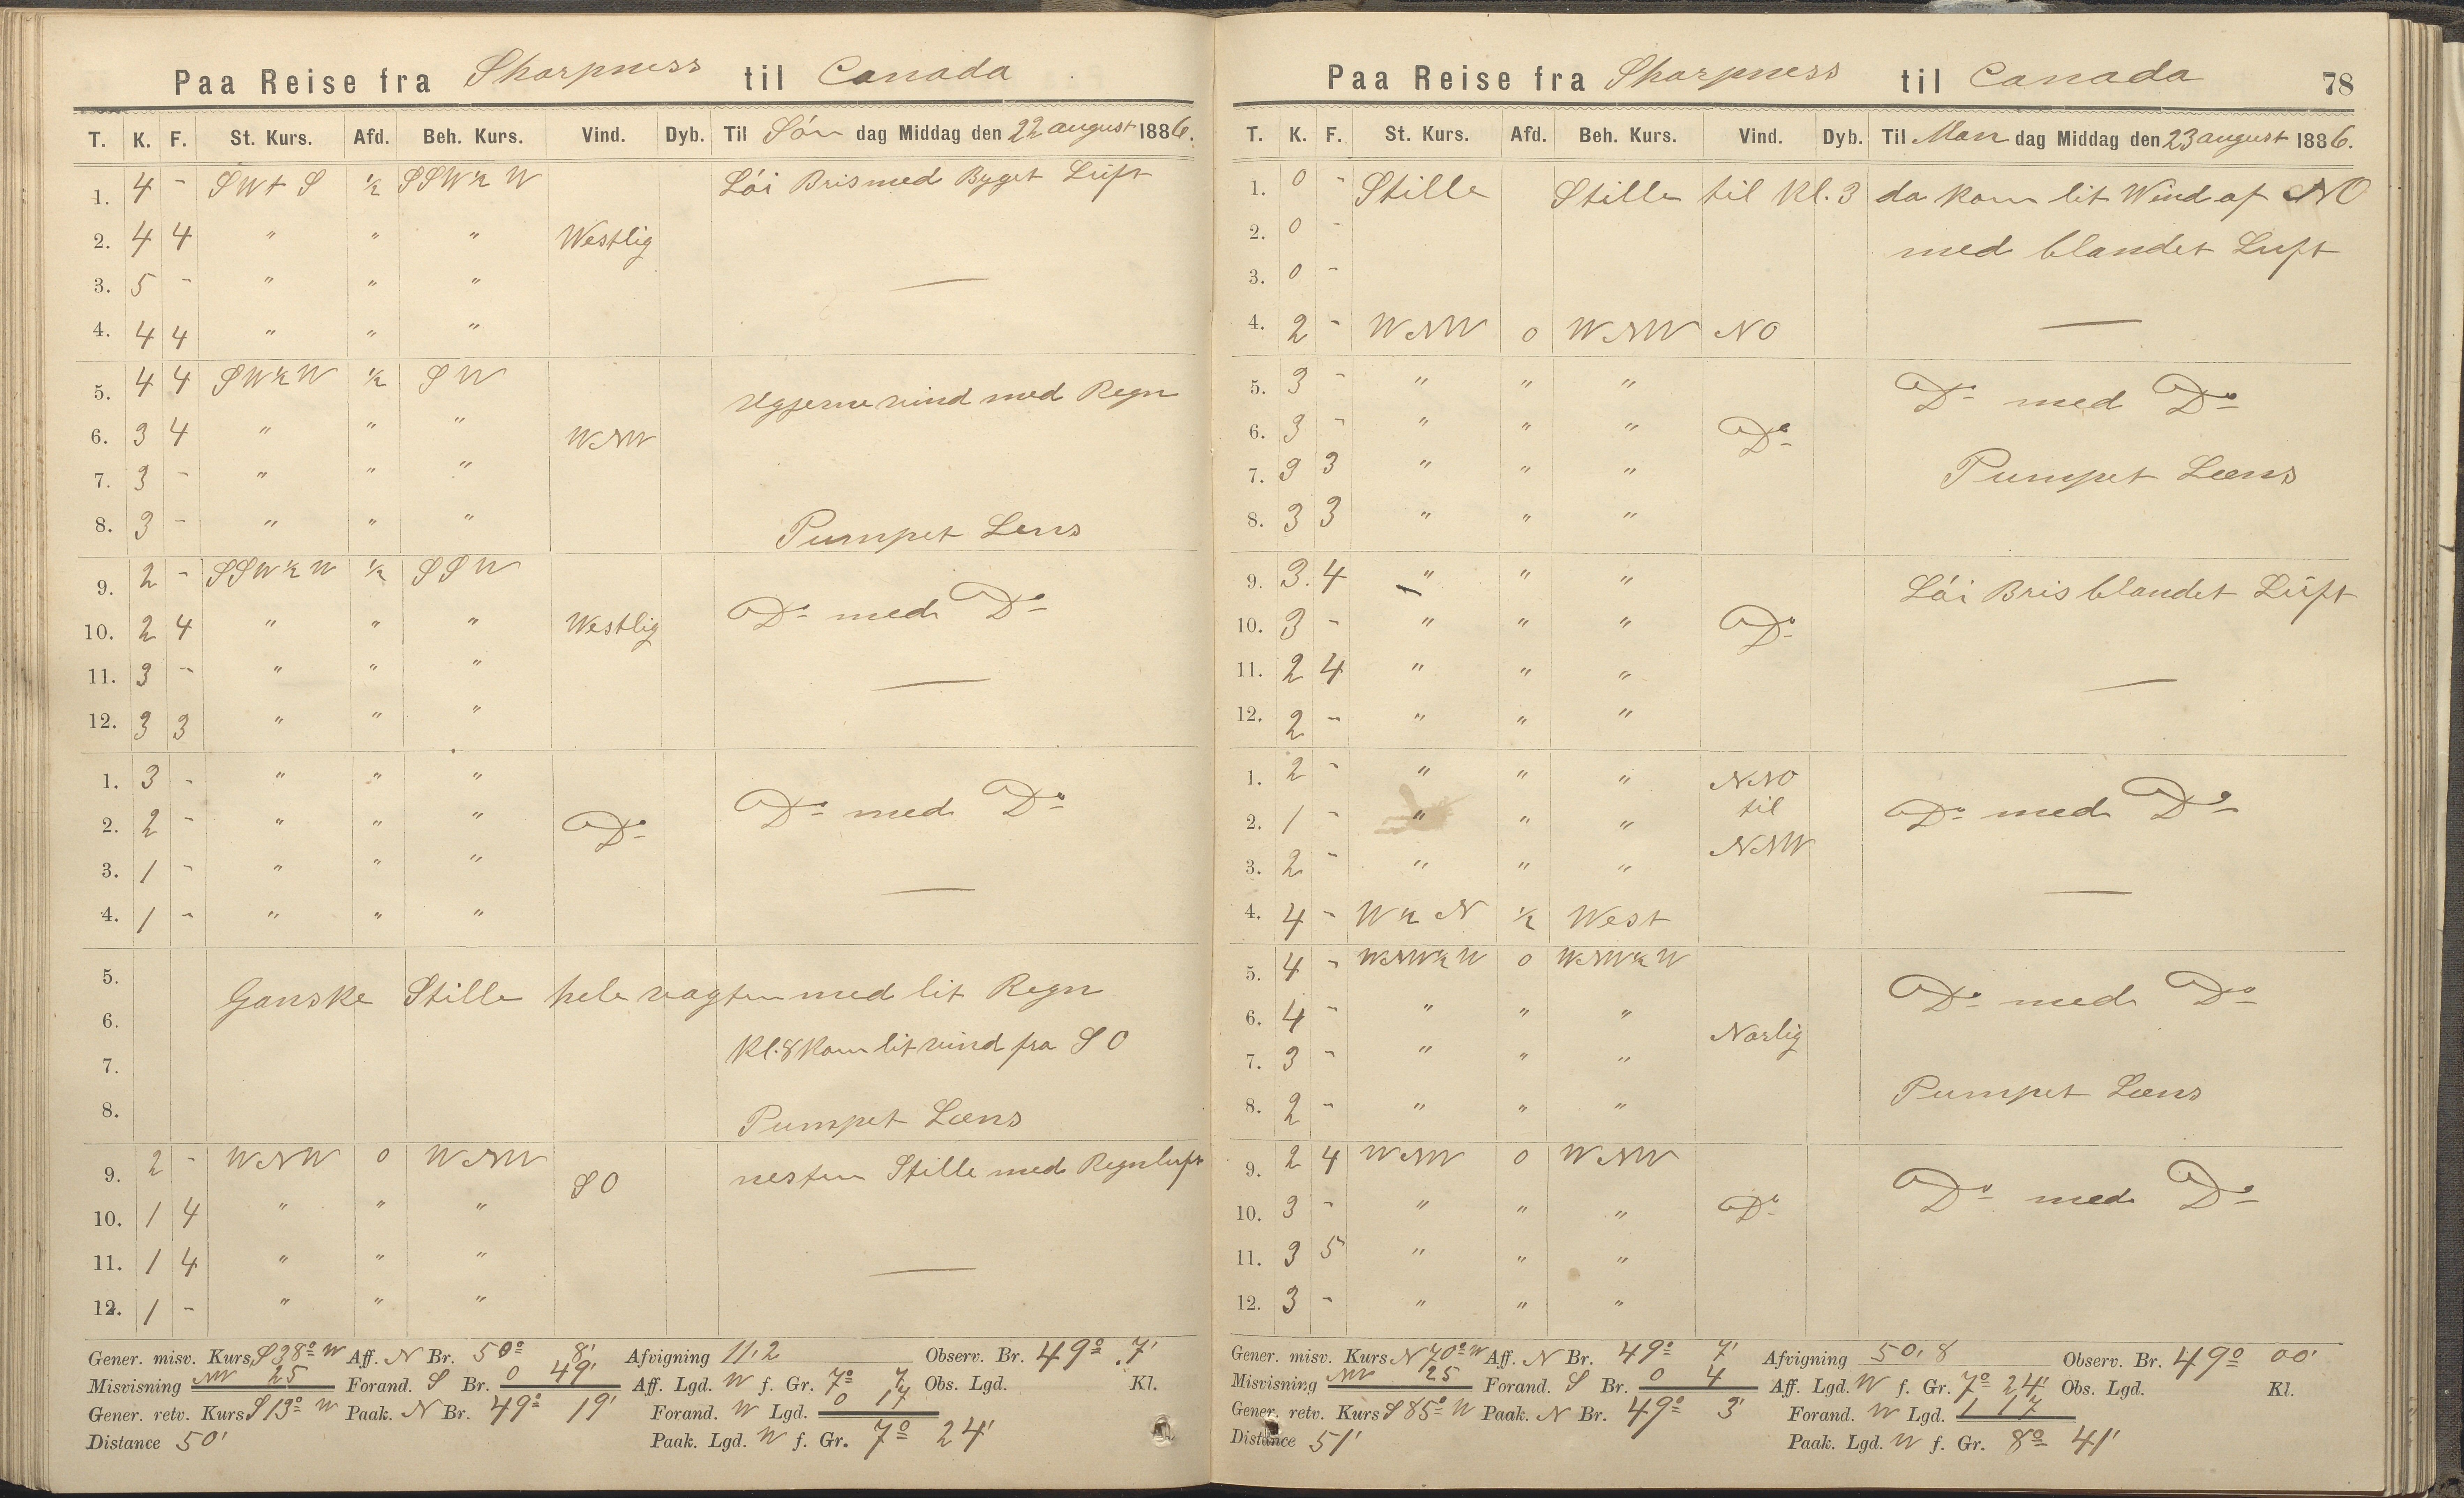 Paa Reise fra Sharpness til Canada
T. K. F. St. Kurs. Afd. Beh. Kurs. Vind. Dyb. Til Søn dag Middag den 22 august 1886.
1. 4 - SWtS ½ SSW½W Löi Bris med Byget Luft
2. 4 4 " " " Westlig
3. 5 - " " " —
4. 4 4 " " "
5. 4 4 SW½W ½ SW
vind med Regn
6. 3 4 " " " WNW
7. 3 - " " "
8. 3 - " " " Pumpet Lens
9. 2 - SSW½W ½ SSW
10. 2 4 " " " Westlig Do med Do
11. 3 - " " " —
12. 3 3 " " "
1. 3 - " " "
2. 2 - " " " Do Do med Do
3. 1 - " " " —
4. 1 - " " "
5.
Ganske Stille hele vagten med lit Regn
6.
Kl. 8 kom lit vind fra SO
7.
8. Pumpet Læns
9. 2 - WNW 0 WNW SO nesten Stille med Regnluft
10. 1 4 " " "
11. 1 4 " " " —
12. 1 - " " "
Gener. misv. Kurs S 38° W Aff. N Br. 50° 8' Afvigning 11,2 Observ. Br. 49° 7'
Misvisning NW 25 Forand. S Br. 0 49' Aff. Lgd. W f. Gr. 7° 7 Obs. Lgd. Kl.
Gener. retv. Kurs S 13° W Paak. N Br. 49° 19' Forand. W Lgd. 0 17
Distance 50' Paak. Lgd. W f. Gr. 7° 24'
Paa Reise fra Sharpness til Canada 78
T. K. F. St. Kurs. Afd. Beh. Kurs. Vind. Dyb. Til Man dag Middag den 23 august 1886.
1. 0 - Stille Stille til Kl. 3 da kom lit Wind af NO
2. 0 - med blandet Luft
3. 0 -
4. 2 - WNW 0 WNW NO —
5. 3 - " " " Do med Do
6. 3 - " " " Do
7. 3 3 " " " Pumpet Læns
8. 3 3 " " "
9. 3. 4 " " " Löi Bris blandet Luft
10. 3 - " " " Do
11. 2 4 " " " —
12. 2 - " " "
1. 2 - " " " NNO
til
2. 1 - " " " Do med Do
3. 2 - " " " NNW
4. 4 - W½N ½ West —
5. 4 - WNW½W 0 WNW½W Do med Do
6. 4 - " " " Norlig
7. 3 - " " "
8. 2 - " " " Pumpet Læns
9. 2 4 WNW 0 WNW
10. 3 - " " " Do Do med Do
11. 3 5 " " "
12. 3 - " " "
Gener. misv. Kurs N 70° W Aff. N Br. 49° 7' Afvigning 50,8 Observ. Br. 49° 00'
Misvisning NW 25 Forand. S Br. 0 4 Aff. Lgd. W f. Gr. 7° 24' Obs. Lgd. Kl.
Gener. retv. Kurs S 85° W Paak. N Br. 49° 3' Forand. W Lgd. 1 17
Distance 51' Paak. Lgd. W f. Gr. 8° 41'